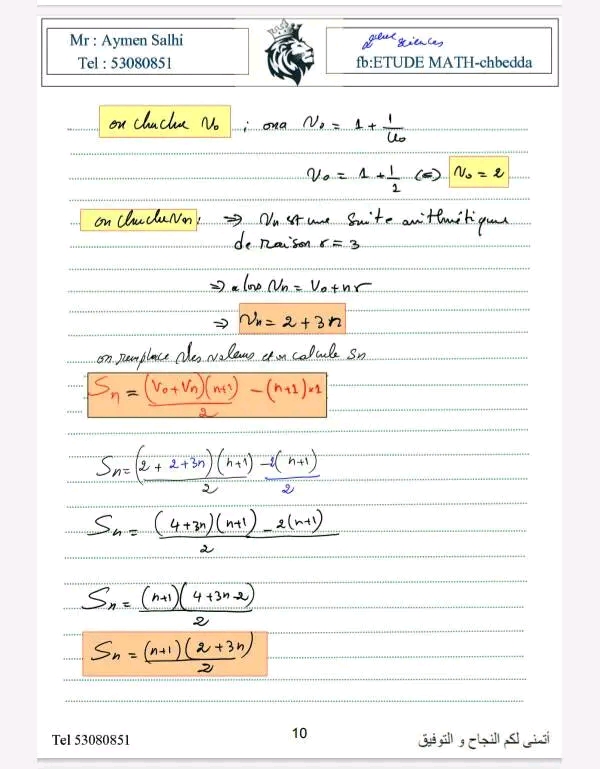 Mr : Aymen Salhi
Tel : 53080851
2ème sciences
fb:ETUDE MATH-chbedda
on cherche V₀ ; on a V₀ = 1 + 1/U₀
V₀ = 1 + 1/2 (=) V₀ = 2
on cherche Vn : ⇒ Vn est une suite arithmétique
de raison r = 3
⇒ alors Vn = V₀ + nr
⇒ Vn = 2 + 3n
on remplace des valeurs et on calcule Sn
Sn = (V₀ + Vn)(n+1)/2 - (n+1)×1
Sn = (2 + 2+3n)(n+1)/2 - 2(n+1)/2
Sn = (4+3n)(n+1) - 2(n+1)/2
Sn = (n+1)(4+3n-2)/2
Sn = (n+1)(2+3n)/2
Tel 53080851
10
أتمنى لكم النجاح و التوفيق